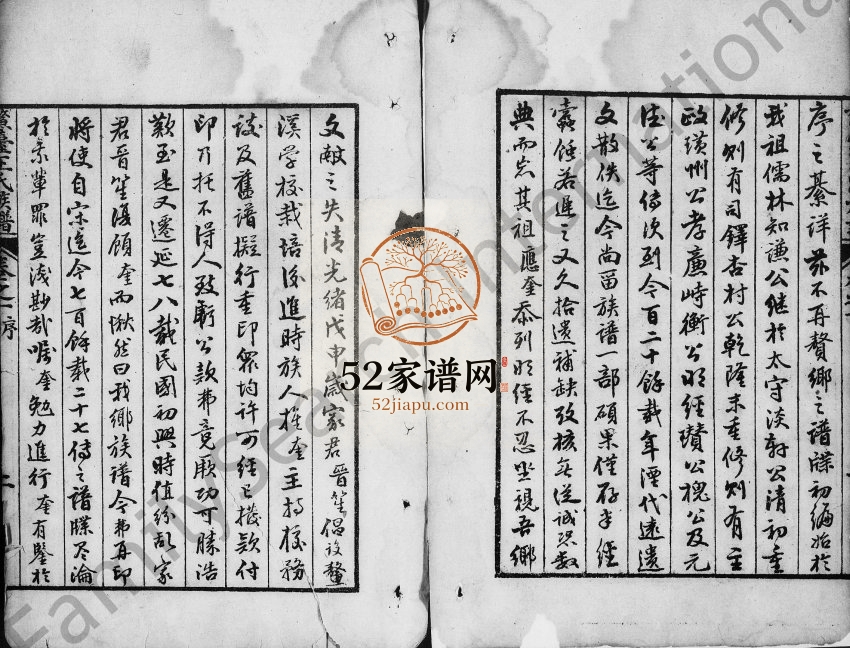 序之綦詳茲不再贅鄉之譜牒初編始於
我祖儒林知謙公继於太守淡軒公清初重
修則有司鐸杏村公乾隆末重修則有主
政璜州公孝廉峙衡公明經瓚公槐公及元
德公等傳次到今百二十餘載年湮代遠遺
文散佚迄今尚留族譜一部碩果僅存
蠹蝕若遲之又久拾遺補缺攷核無從誠恐數
典而忘其祖應奎忝列明經不忍坐視吾鄉
文獻之失清光緒戊申歲家君晉笙倡設鰲
溪學校栽培後進時族人推奎主持校務
談及舊譜擬行重印眾均許可經已撥款付
印乃托不得人致虧公款弗竟厥功可勝浩
歎至是又遷延七八載民國初興時值紛亂家
君晉笙復顧奎而愀然曰我鄉族譜今弗再印
將使自宋迄今七百餘載二十七傳之譜牒盡淪
於吾輩罪豈淺尠哉囑奎勉力進行奎有鑒於
王氏族譜
卷之一 序
52家谱网
52jiapu.com
FamilySearch International